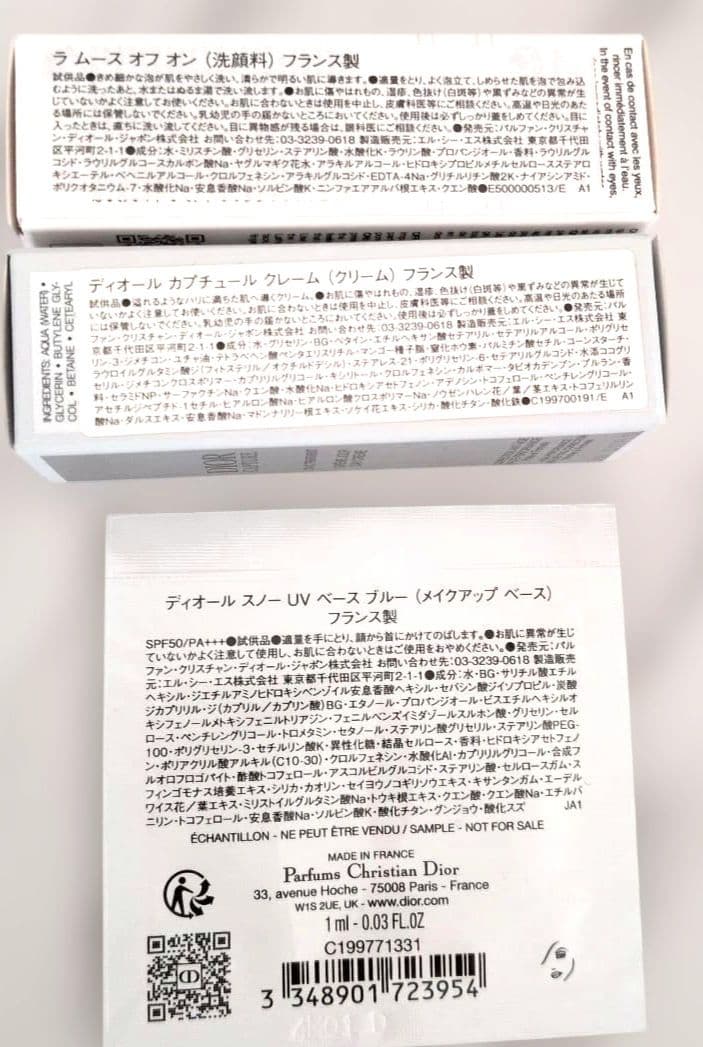 ラ ムース オフ オン (洗顔料) フランス製
試供品●きめ細かな泡が肌をやさしく洗い、清らかで明るい肌に導きます。●適量をとり、よく泡立て、しめらせた肌を泡で包み込
むように洗ったあと、水またはぬるま湯で洗い流します。●お肌に傷やはれもの、湿疹、色抜け(白斑等)や黒ずみなどの異常が生
じていないかよく注意してお使いください。お肌に合わないときは使用を中止し、皮膚科医等にご相談ください。高温や日光のあた
る場所には保管しないでください。乳幼児の手の届かないところにおいてください。使用後は必ずしっかり蓋をしめてください。目に
入ったときは、直ちに洗い流してください。目に異物感が残る場合は、眼科医にご相談ください。●発売元:パルファン・クリスチャ
ン・ディオール・ジャポン株式会社 お問い合わせ先:03-3239-0618 製造販売元:エル・シー・エス株式会社 東京都千代田
区平河町2-1-1●成分:水・ミリスチン酸・グリセリン・ステアリン酸・水酸化K・ラウリン酸・プロパンジオール・香料・ラウリルグル
コシド・ラウリルグルコースカルボン酸Na・ヤグルマギク花水・アラキルアルコール・ヒドロキシプロピルメチルセルロースステアロ
キシエーテル・ベヘニルアルコール・クロルフェネシン・アラキルグルコシド・EDTA-4Na・グリチルリチン酸2K・ナイアシンアミド・
ポリクオタニウム-7・水酸化Na・安息香酸Na・ソルビン酸K・ニンファエアアルバ根エキス・クエン酸●E500000513/E A1
En cas de contact avec les yeux,
rincer immédiatement à l'eau.
In the event of contact with eyes,
INGREDIENTS: AQUA (WATER) •
GLYCERIN • BUTYLENE GLY-
COL • BETAINE • CETEARYL
ディオール カプチュール クレーム (クリーム) フランス製
試供品●溢れるようなハリに満ちた肌へ導くクリーム。●お肌に傷やはれもの、湿疹、色抜け(白斑等)や黒ずみなどの異常が生じて
いないかよく注意してお使いください。お肌に合わないときは使用を中止し、皮膚科医等にご相談ください。高温や日光のあたる場所
には保管しないでください。乳幼児の手の届かないところにおいてください。使用後は必ずしっかり蓋をしめてください。●発売元:パル
ファン・クリスチャン・ディオール・ジャポン株式会社 お問い合わせ先:03-3239-0618 製造販売元:エル・シー・エス株式会社 東
京都千代田区平河町2-1-1●成分:水・グリセリン・BG・ベタイン・エチルヘキサン酸セテアリル・セテアリルアルコール・ポリグリセ
リン-3・ジメチコン・ユチャ油・テトラベヘン酸ペンタエリスリチル・マンゴー種子脂・窒化ホウ素・パルミチン酸セチル・コーンスターチ・
ラウロイルグルタミン酸ジ(フィトステリル/オクチルドデシル)・ステアレス-21・ポリグリセリン-6・セテアリルグルコシド・水添ココグリ
セリル・ジメチコンクロスポリマー・カプリリルグリコール・キシリトール・クロルフェネシン・カルボマー・タピオカデンプン・プルラン・香
料・セラミドNP・サーファクチンNa・クエン酸・水酸化Na・ヒドロキシアセトフェノン・アデノシン・トコフェロール・ペンチレングリコール・
アセチルジペプチド-1セチル・ヒアルロン酸Na・ヒアルロン酸クロスポリマーNa・ノウゼンハレン花/葉/茎エキス・トコフェリルリン
酸Na・ダルスエキス・安息香酸Na・マドンナリリー根エキス・ソケイ花エキス・シリカ・酸化チタン・酸化鉄●C199700191/E A1
DIOR
ディオール スノー UV ベース ブルー (メイクアップ ベース)
フランス製
SPF50/PA+++●試供品●適量を手にとり、顔から首にかけてのばします。●お肌に異常が生じ
ていないかよく注意して使用し、お肌に合わないときはご使用をおやめください。●発売元:パル
ファン・クリスチャン・ディオール・ジャポン株式会社 お問い合わせ先:03-3239-0618 製造販売
元:エル・シー・エス株式会社 東京都千代田区平河町2-1-1●成分:水・BG・サリチル酸エチル
ヘキシル・ジエチルアミノヒドロキシベンゾイル安息香酸ヘキシル・セバシン酸ジイソプロピル・炭酸
ジカプリリル・ジ(カプリル/カプリン酸)BG・エタノール・プロパンジオール・ビスエチルヘキシルオ
キシフェノールメトキシフェニルトリアジン・フェニルベンズイミダゾールスルホン酸・グリセリン・セル
ロース・ペンチレングリコール・トロメタミン・セタノール・ステアリン酸グリセリル・ステアリン酸PEG-
100・ポリグリセリン-3・セチルリン酸K・異性化糖・結晶セルロース・香料・ヒドロキシアセトフェノ
ン・ポリアクリル酸アルキル(C10-30)・クロルフェネシン・水酸化Al・カプリリルグリコール・合成フ
ルオロフロゴパイト・酢酸トコフェロール・アスコルビルグルコシド・ステアリン酸・セルロースガム・ス
フィンゴモナス培養エキス・シリカ・カオリン・セイヨウノコギリソウエキス・キサンタンガム・エーデル
ワイス花/葉エキス・ミリストイルグルタミン酸Na・トウキ根エキス・クエン酸・クエン酸Na・エチルバ
ニリン・トコフェロール・安息香酸Na・ソルビン酸K・酸化チタン・グンジョウ・酸化スズ JA1
ÉCHANTILLON - NE PEUT ÊTRE VENDU / SAMPLE - NOT FOR SALE
MADE IN FRANCE
Parfums Christian Dior
33, avenue Hoche - 75008 Paris - France
W1S 2UE, UK - www.dior.com
1 ml - 0.03 FL.OZ
C199771331
3 348901 723954